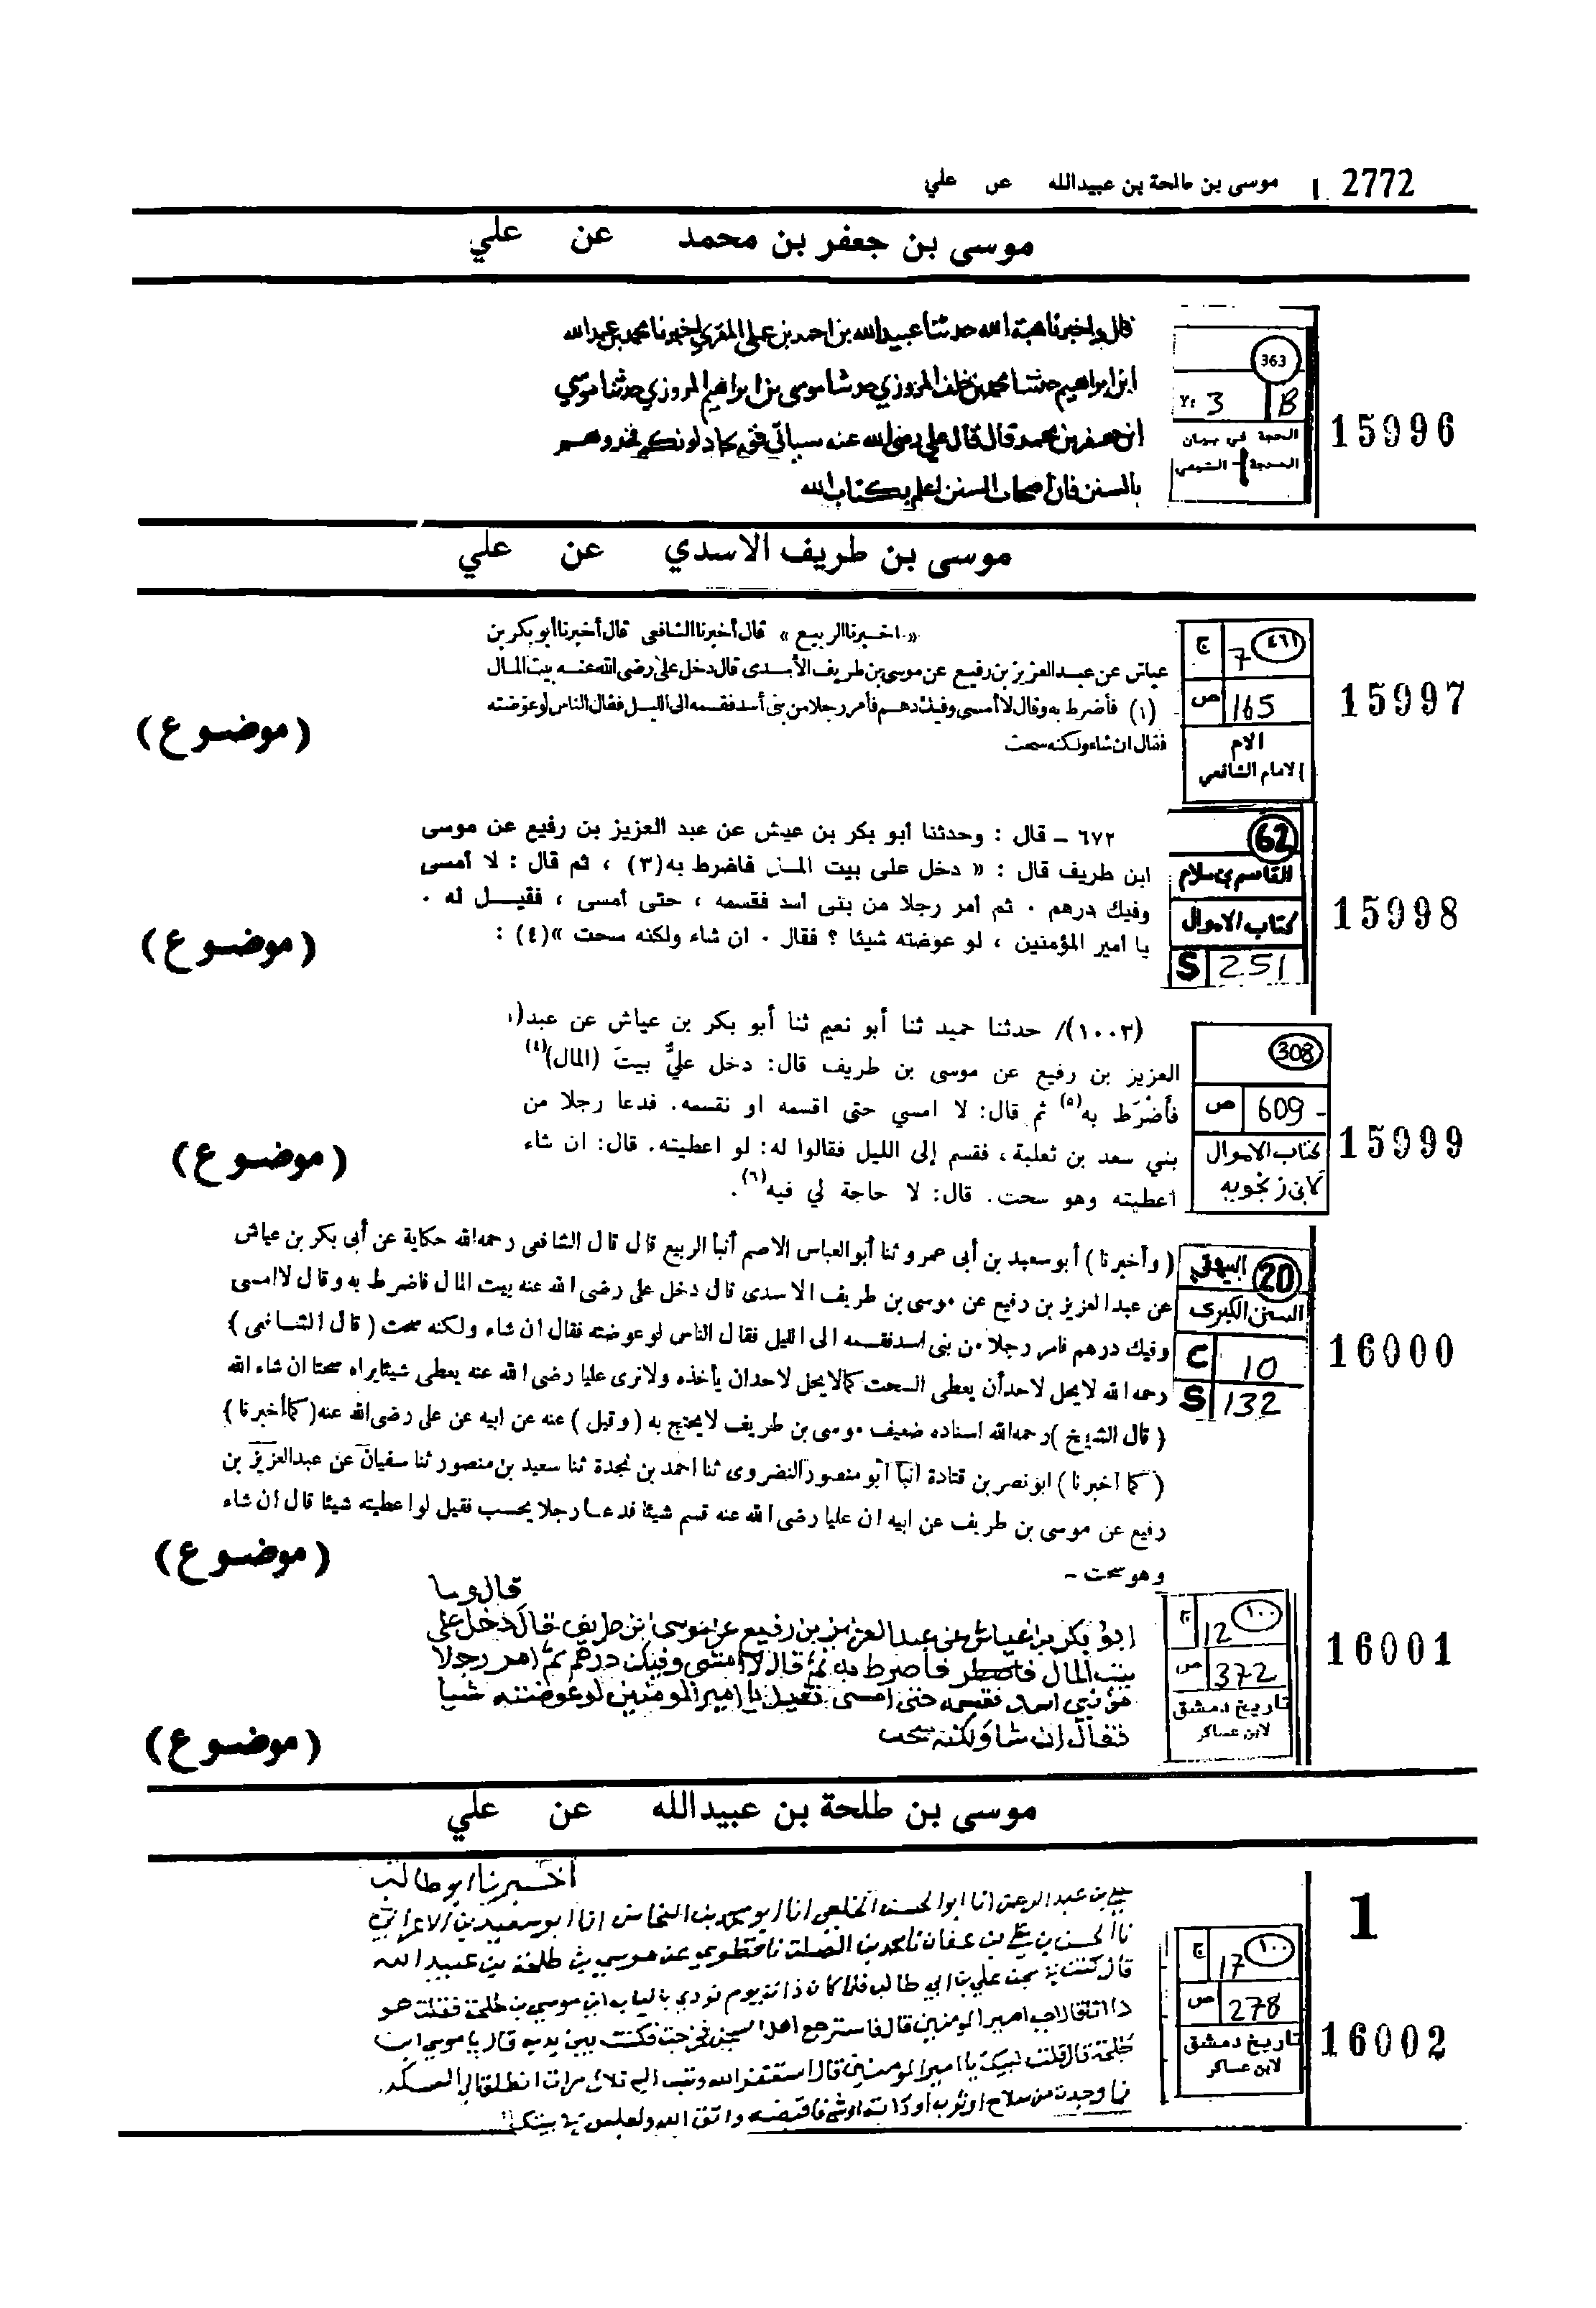 2772 | موسى بن طلحة بن عبيدالله عن علي
موسى بن جعفر بن محمد عن علي
15996
363
B 3
الحجة في بيان
المحجة - التيمي
قال واخبرنا هبة الله حدثنا عبيدالله بن احمد بن علي المقري اخبرنا محمد بن عبدالله
ابن ابراهيم حدثنا محمد بن خلف المروزي حدثنا موسى بن ابراهيم المروزي حدثنا موسي
ابن جعفر بن محمد قال قال علي رضي الله عنه سيأتي قوم يجادلونكم فخذوهم
بالسنن فان أصحاب السنن اعلم بكتاب الله
موسى بن طريف الاسدي عن علي
15997
٤٦١
ج 7
ص 165
الام
الامام الشافعي
«اخبرنا الربيع» قال أخبرنا الشافعي قال أخبرنا أبو بكر بن
عياش عن عبد العزيز بن رفيع عن موسى بن طريف الأسدى قال دخل على رضى الله عنه بيت المال
(١) فأضرط به وقال لا أمسى وفيك درهم فأمر رجلا من بنى أسد فقسمه الى الليل فقال الناس لو عوضته
فقال ان شاء ولكنه سحت
(موضوع)
15998
62
القاسم بن سلام
كتاب الاموال
S 251
٦٧٢ – قال : وحدثنا أبو بكر بن عيش عن عبد العزيز بن رفيع عن موسى
ابن طريف قال : « دخل على بيت المال فاضرط به(٣) ، ثم قال : لا أمسى
وفيك درهم . ثم أمر رجلا من بنى أسد فقسمه ، حتى أمسى ، فقيل له .
يا أمير المؤمنين ، لو عوضته شيئا ؟ فقال . ان شاء ولكنه سحت »(٤) :
(موضوع)
15999
308
ص 609
كتاب الاموال
لابن زنجويه
(١٠٠٣)/ حدثنا حميد ثنا أبو نعيم ثنا أبو بكر بن عياش عن عبد(١
العزيز بن رفيع عن موسى بن طريف قال: دخل عليٌّ بيتَ (المال)(٤)
فأَضْرَط به(٥) ثم قال: لا امسي حتى اقسمه او نقسمه. فدعا رجلا من
بني سعد بن ثعلبة، فقسم إلى الليل فقالوا له: لو اعطيته. قال: ان شاء
أعطيته وهو سحت. قال: لا حاجة لي فيه(٦).
(موضوع)
16000
20
البيهقي
السنن الكبرى
C 10
S 132
( وأخبرنا ) أبو سعيد بن أبى عمرو ثنا أبو العباس الاصم أنبأ الربيع قال قال الشافعى رحمه الله حكاية عن أبى بكر بن عياش
عن عبد العزيز بن رفيع عن موسى بن طريف الاسدى قال دخل على رضى الله عنه بيت المال فاضرط به وقال لا امسى
وفيك درهم فامر رجلا من بنى اسد فقسمه الى الليل فقال الناس لو عوضته فقال ان شاء ولكنه سحت ( قال الشافعى )
رحمه الله لا يحل لاحد أن يعطى السحت كما لا يحل لاحد ان يأخذه ولا نرى عليا رضى الله عنه يعطى شيئا يراه سحتا ان شاء الله
( قال الشيخ ) رحمه الله اسناده ضعيف موسى بن طريف لا يحتج به ( وقيل ) عنه عن ابيه عن على رضى الله عنه ( كما أخبرنا )
( كما أخبرنا ) ابو نصر بن قتادة انبأ أبو منصور النضروى ثنا احمد بن نجدة ثنا سعيد بن منصور ثنا سفيان عن عبدالعزيز بن
رفيع عن موسى بن طريف عن ابيه ان عليا رضى الله عنه قسم شيئا فدعا رجلا يحسب فقيل لو اعطيته شيئا قال ان شاء
وهو سحت –
(موضوع)
16001
١٠٠
ج 12
ص 372
تاريخ دمشق
لابن عساكر
قال وسا
ابو بكر بن عياش عن عبد العزيز بن رفيع عن موسى بن طريف قال دخل على
بيت المال فاضرط به ثم قال لا امسى وفيك درهم ثم امر رجلا
من بني اسد فقسمه حتى امسى فقيل يا امير المومنين لو عوضته شيا
فقال ان شا ولكنه سحت
(موضوع)
موسى بن طلحة بن عبيدالله عن علي
1
16002
١٠٠
ج 17
ص 278
تاريخ دمشق
لابن عساكر
اخبرنا ابو طالب
علي بن عبد الرحمن انا ابو الحسن الخلعي انا ابو محمد بن النحاس انا ابو سعيد بن الاعرابي
نا الحسن بن علي بن عفان نا محمد بن الصلت نا عن موسي بن طلحة بن عبيد الله
قال كنت في سجن علي بن ابي طالب فلما كان ذات يوم نودي بالباب اين موسي بن طلحة فقلت هو
ذا انا قال اجب امير المومنين قال فاسترجع اهل السجن فخرجت فكنت بين يديه قال يا موسي ابن
طلحة قال قلت لبيك يا امير المومنين قال استغفر الله وتب اليه ثلاث مرات انطلق الى العسكر
فما وجدت من سلاح او ثوب او دابة او شي فاقبضه واتق الله واجلس في بيتك